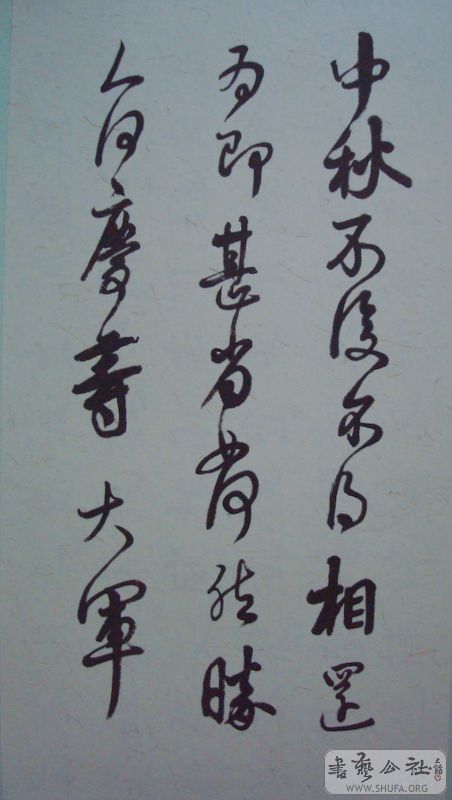 中秋不復不得相還
為即甚省如何然勝
人何慶等大軍
書藝公社
WWW.SHUFA.ORG